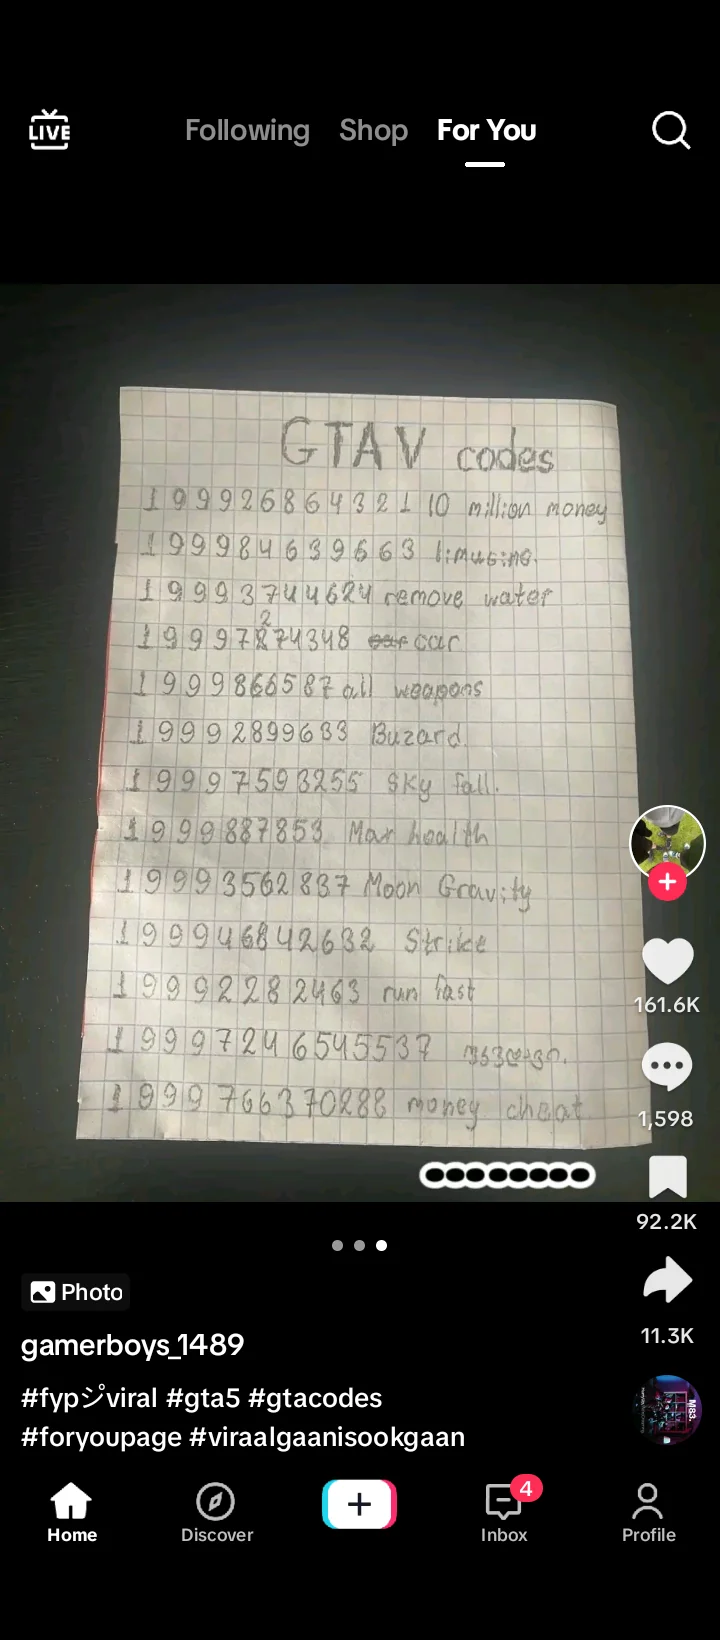 LIVE
Following Shop For You
GTA V codes
1 999 268 64 321 10 million money
1 999 84 639 663 limusine.
1 999 3 744 624 remove water
2
1 999 7 8 74348 car car
1 999 866 587 all weapons
1 999 2899633 Buzard.
1 999 759 3255 Sky fall.
1 999 887853 Max health
1 999 3562 837 Moon Gravity
1 999 468 42632 Strike
1 999 228 2463 run fast
1 999 724 6545537
1 999 766 370288 money cheat
161.6K
1,598
92.2K
11.3K
Photo
gamerboys_1489
#fypシviral #gta5 #gtacodes
#foryoupage #viraalgaanisookgaan
M83.
Home Discover Inbox 4 Profile